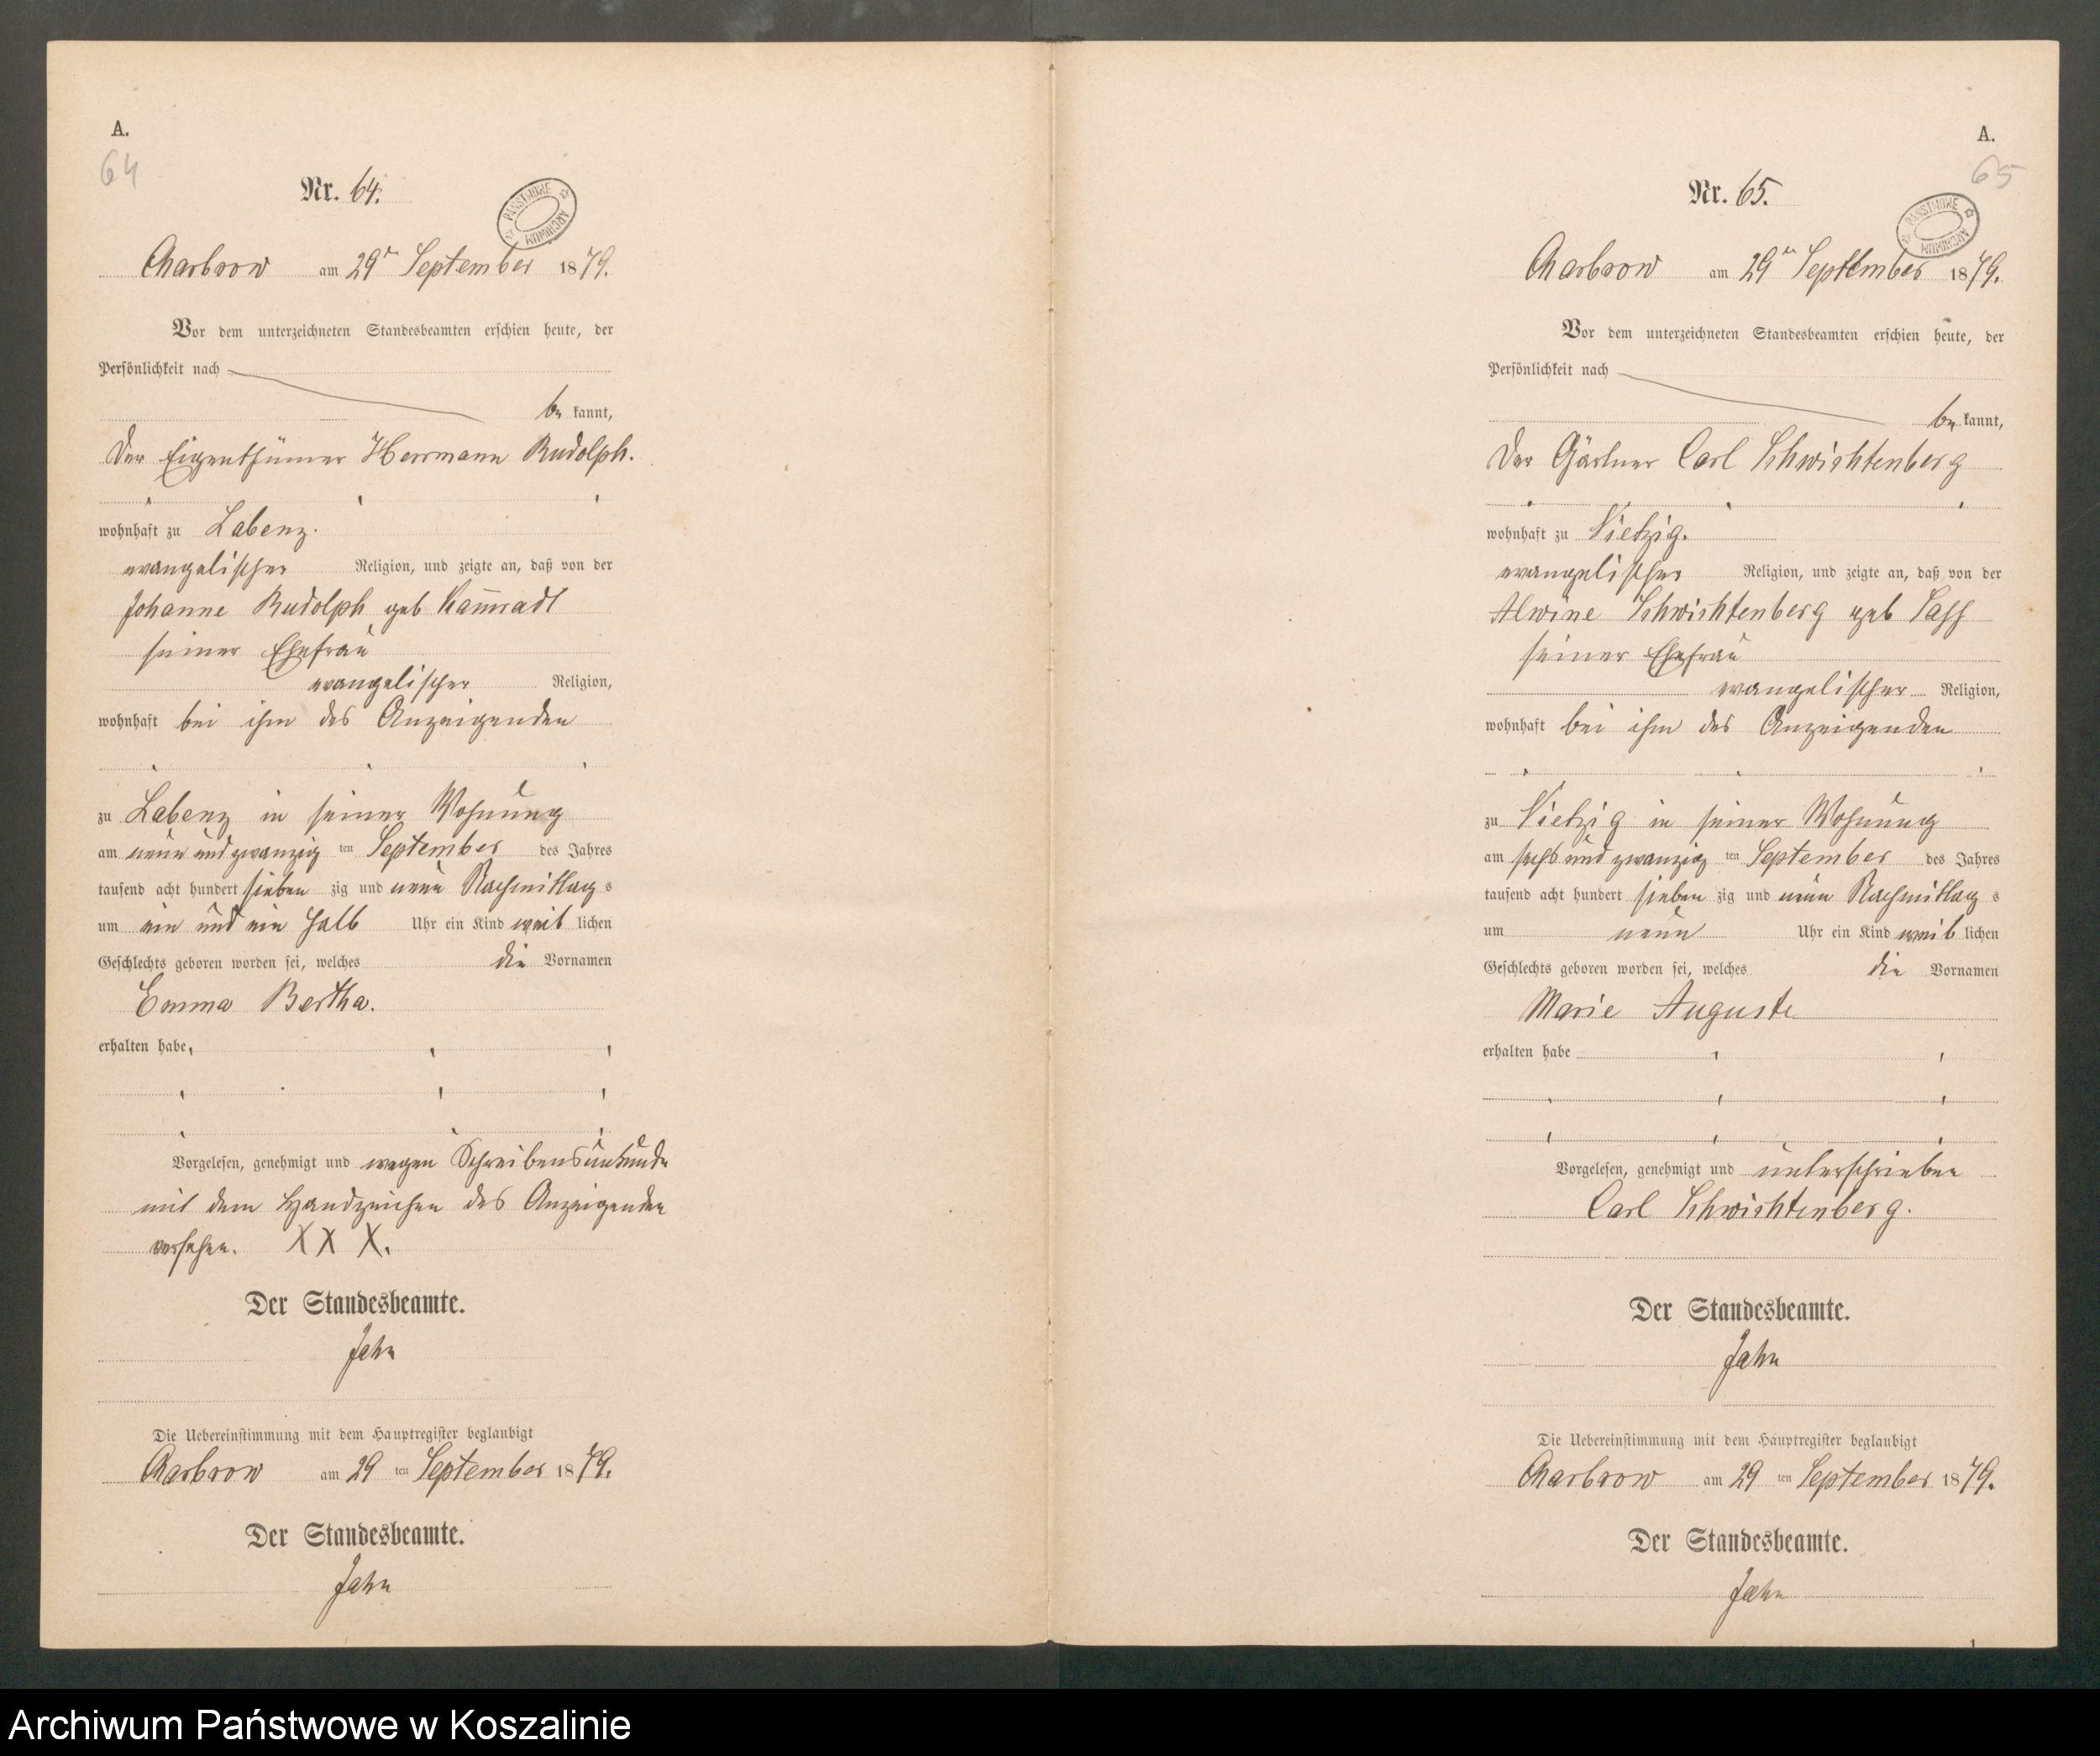 A.
64
Nr. 64.
PAŃSTWOWE ARCHIWUM
Charbrow am 29n September 1879.
Vor dem unterzeichneten Standesbeamten erschien heute, der
Persönlichkeit nach
be kannt,
Der Eigenthümer Herrmann Rudolph.
wohnhaft zu Labenz.
evangelischer Religion, und zeigte an, daß von der
Johanne Rudolph geb
seiner Ehefrau
evangelischer Religion,
wohnhaft bei ihm des Anzeigenden
zu Labenz in seiner Wohnung
am neun und zwanzig ten September des Jahres
tausend acht hundert sieben zig und neun Nachmittag s
um ein und ein halb Uhr ein Kind weib lichen
Geschlechts geboren worden sei, welches die Vornamen
Emma Bertha.
erhalten habe,
Vorgelesen, genehmigt und wegen Schreibensunkunde
mit dem Handzeichen des Anzeigenden
versehen. X X X.
Der Standesbeamte.
Jahn
Die Uebereinstimmung mit dem Hauptregister beglaubigt
Charbrow am 29 ten September 1879.
Der Standesbeamte.
Jahn
A.
65
Nr. 65.
PAŃSTWOWE ARCHIWUM
Charbrow am 29n September 1879.
Vor dem unterzeichneten Standesbeamten erschien heute, der
Persönlichkeit nach
be kannt,
Der Gärtner Carl Schwichtenberg
wohnhaft zu Vietzig.
evangelischer Religion, und zeigte an, daß von der
Alwine Schwichtenberg geb Sass
seiner Ehefrau
evangelischer Religion,
wohnhaft bei ihm des Anzeigenden
zu Vietzig in seiner Wohnung
am sechs und zwanzig ten September des Jahres
tausend acht hundert sieben zig und neun Nachmittag s
um neun Uhr ein Kind weib lichen
Geschlechts geboren worden sei, welches die Vornamen
Marie Auguste
erhalten habe
Vorgelesen, genehmigt und unterschrieben
Carl Schwichtenberg.
Der Standesbeamte.
Jahn
Die Uebereinstimmung mit dem Hauptregister beglaubigt
Charbrow am 29 ten September 1879.
Der Standesbeamte.
Jahn
1
Archiwum Państwowe w Koszalinie